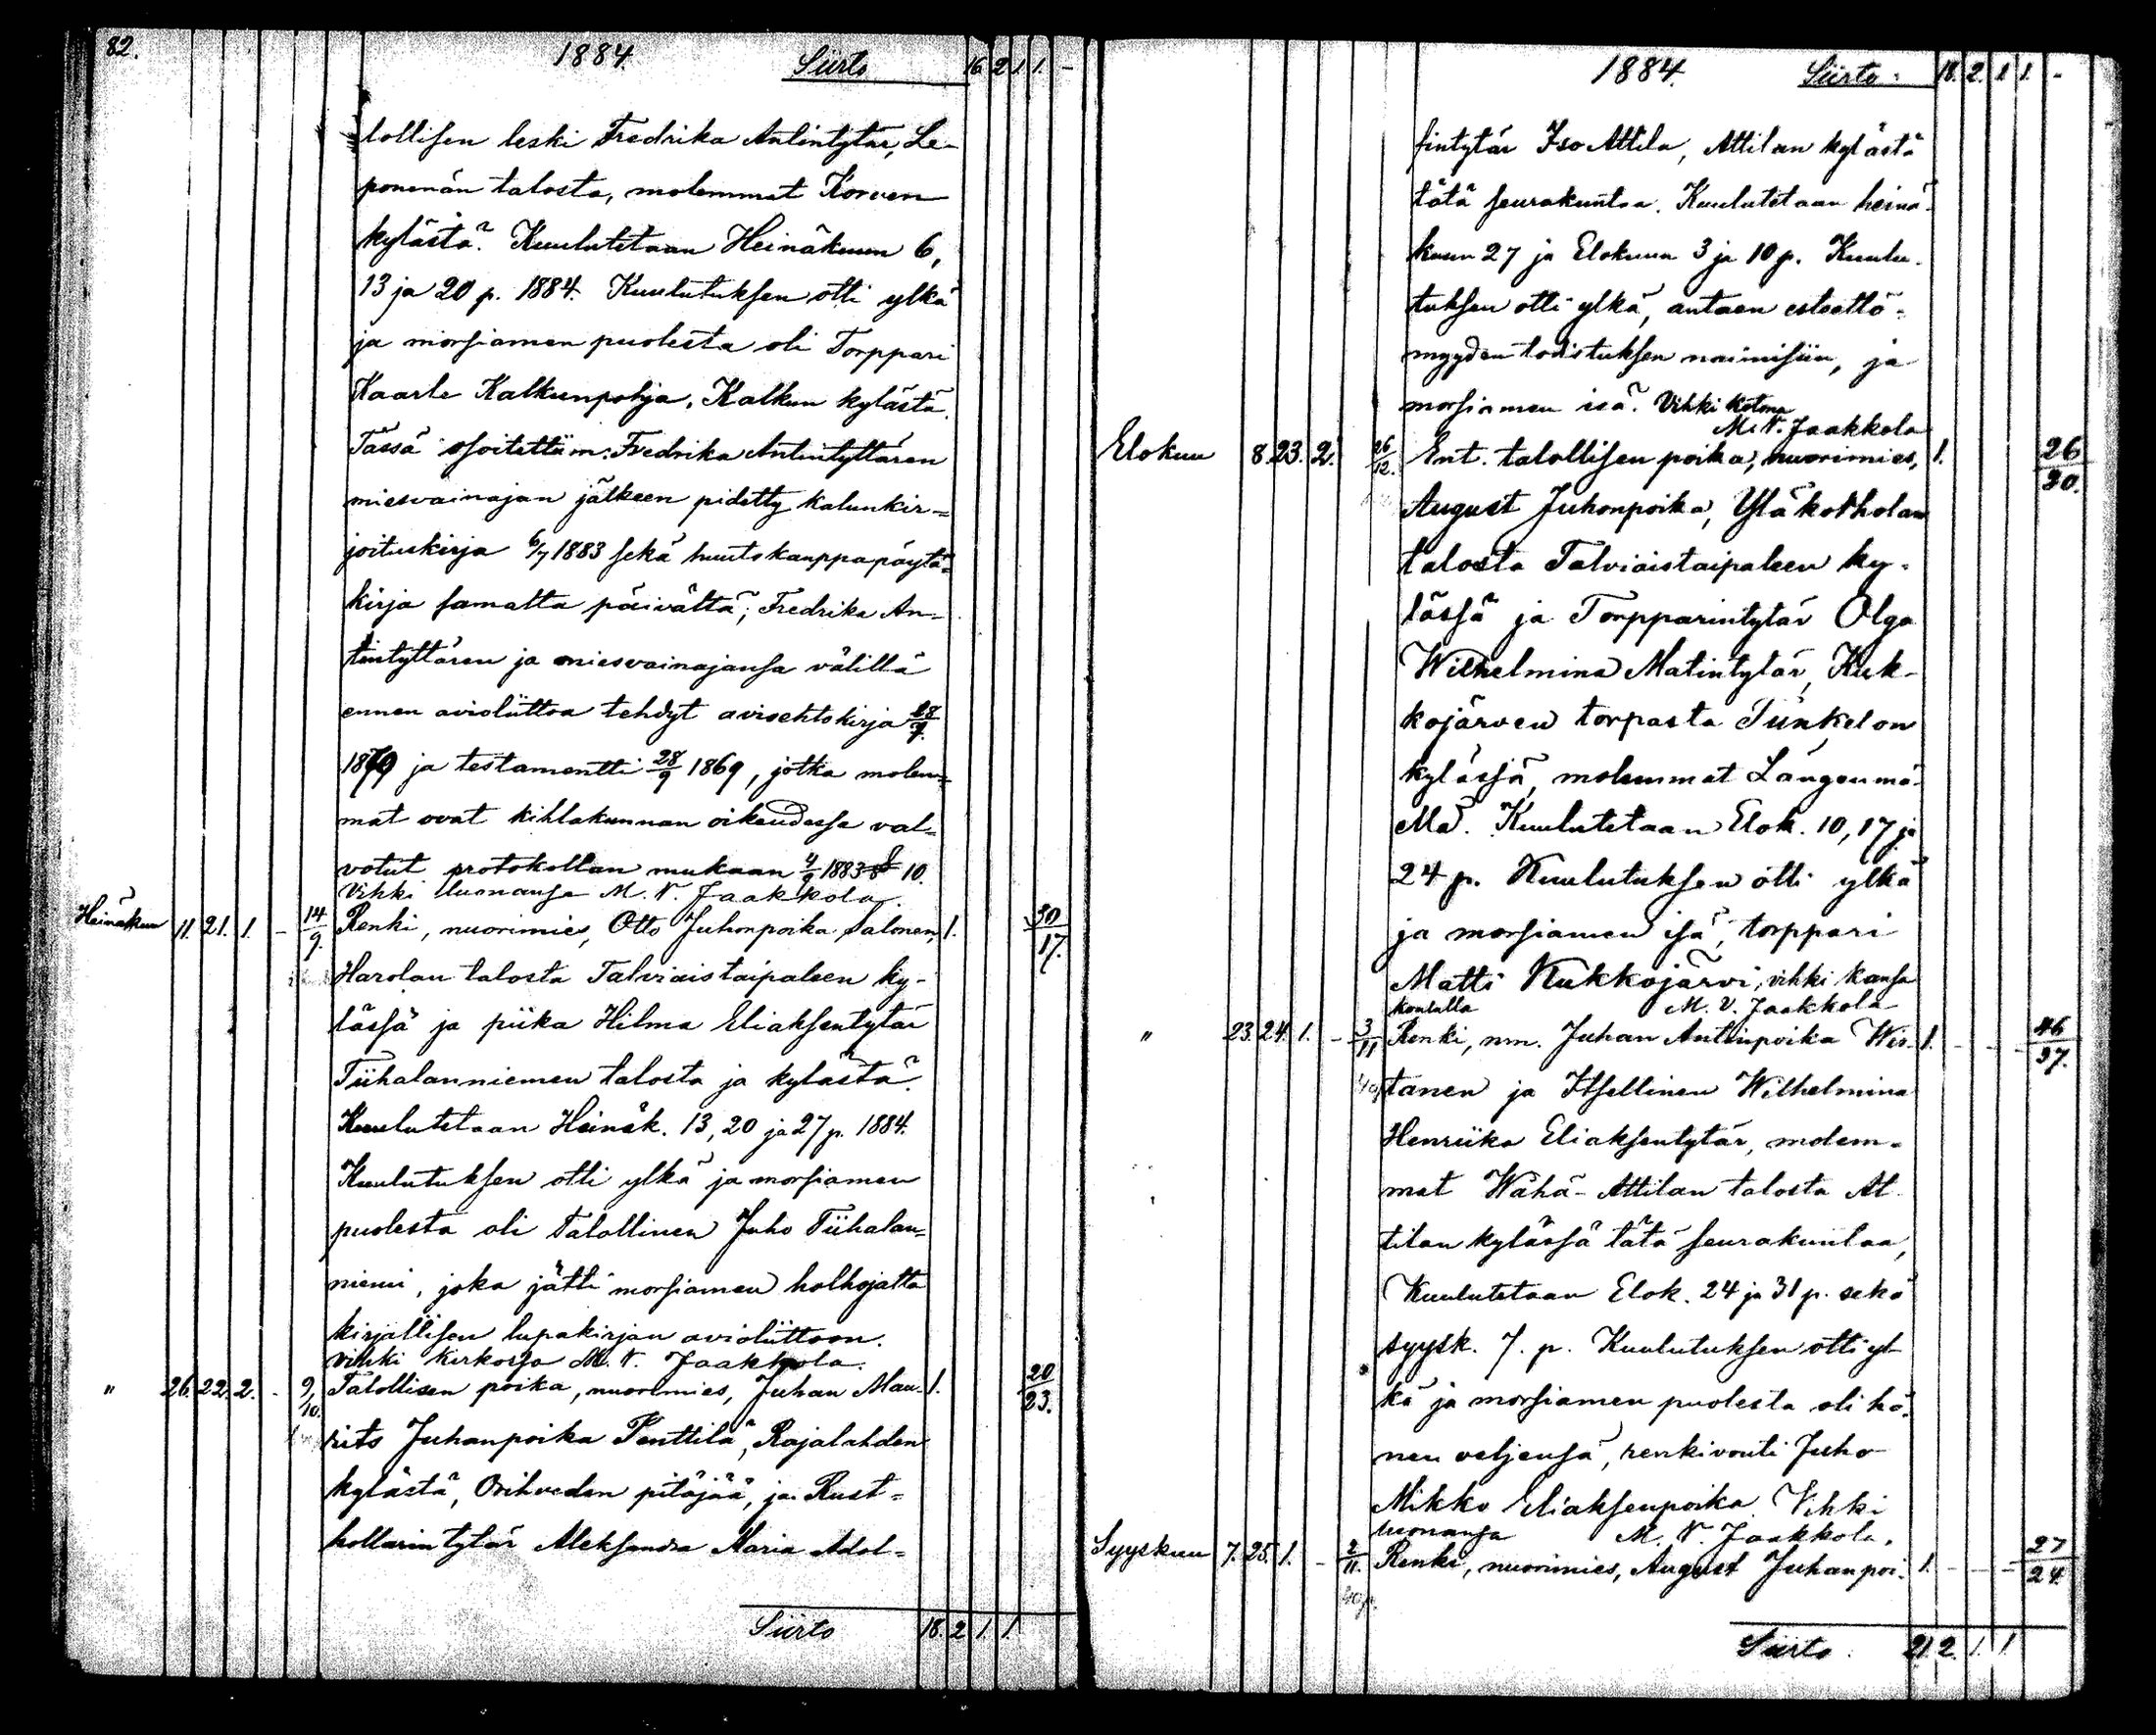 82.
1884.
Siirto 16. 2 1. 1. -
tollisen leski Fredrika Antintytär, Le-
ponenän talosta, molemmat Korven
kylästä. Kuulutetaan Heinäkuun 6,
13 ja 20 p. 1884. Kuulutuksen otti ylkä
ja morsiamen puolesta oli Torppari
Kaarle Kalkunpohja, Kalkun kylästä.
Tässä osoitettiin: Fredrika Antintyttären
miesvainajan jälkeen pidetty kalunkir-
joituskirja 6/7 1883 sekä huutokauppapöytä-
kirja samalta päivältä; Fredrika An-
tintyttären ja miesvainajansa välillä
ennen avioliittoa tehdyt avioehtokirja
ja testamentti 28/9 1869, jotka molem-
mat ovat kihlakunnan oikeudessa val-
votut protokollan mukaan 4/9 1883 § 10.
Vihki luonansa M. V. Jaakkola.
Heinäkuu 11. 21. 1. - 14/9. Renki, nuorimies, Otto Juhonpoika Salonen, 1. 30/17.
Harolan talosta Talviaistaipaleen ky-
lässä ja piika Hilma Eliaksentytär
Tiihalanniemen talosta ja kylästä.
Kuulutetaan Heinäk. 13, 20 ja 27 p. 1884.
Kuulutuksen otti ylkä ja morsiamen
puolesta oli Talollinen Juho Tiihalan-
niemi, joka jätti morsiamen holhojalta
kirjallisen lupakirjan avioliittoon.
vihki kirkossa M. V. Jaakkola.
" 26. 22. 2. - 9/10. Talollisen poika, nuorimies, Juhan Mau- 1. 20/23.
rits Juhanpoika Penttilä, Rajalahden
kylästä, Oriheden pitäjää, ja Rust-
hollarintytär Aleksandra Maria Adol-
Siirto 18. 2 1. 1.
1884.
Siirto: 18. 2. 1 1. -
fintytär Iso Attila, Attilan kylästä
tätä seurakuntaa. Kuulutetaan heinä-
kuun 27 ja Elokuun 3 ja 10 p. Kuulu-
tuksen otti ylkä, antaen esteettö-
myyden todistuksen naimisiin, ja
morsiamen isä. Vihki kotona
M. V. Jaakkola
Elokuu 8. 23. 2. 26/12. Ent. talollisen poika, nuorimies, 1. 26/30.
August Juhonpoika, Yläkotholan
talosta Talviaistaipaleen ky-
lässä ja Torpparintytär Olga
Wilhelmina Matintytär, Kuk-
kojärven torpasta Tiinkelon
kylässä, molemmat Längenmä-
ellä. Kuulutetaan Elok. 10, 17 ja
24 p. Kuulutuksen otti ylkä
ja morsiamen isä, torppari
Matti Kukkojärvi, vihki kansa
koululla M. V. Jaakkola
" 23. 24. 1. - 3/11 Renki, nm. Juhan Antinpoika Wir- 1. - - - 46/37.
tanen ja Itsellinen Wilhelmina
Henriika Eliaksentytär, molem-
mat Wähä-Attilan talosta At-
tilan kylässä tätä seurakuntaa,
Kuulutetaan Elok. 24 ja 31 p. sekä
syysk. 7. p. Kuulutuksen otti yl-
kä ja morsiamen puolesta oli hä-
nen veljensä, renkivouti Juho
Mikko Eliaksenpoika. Vihki
luonansa M. V. Jaakkola.
Syyskuu 7. 25. 1. - 2/11. Renki, nuorimies, August Juhanpoi- 1. - - - 27/24.
Siirto. 21. 2. 1. 1.